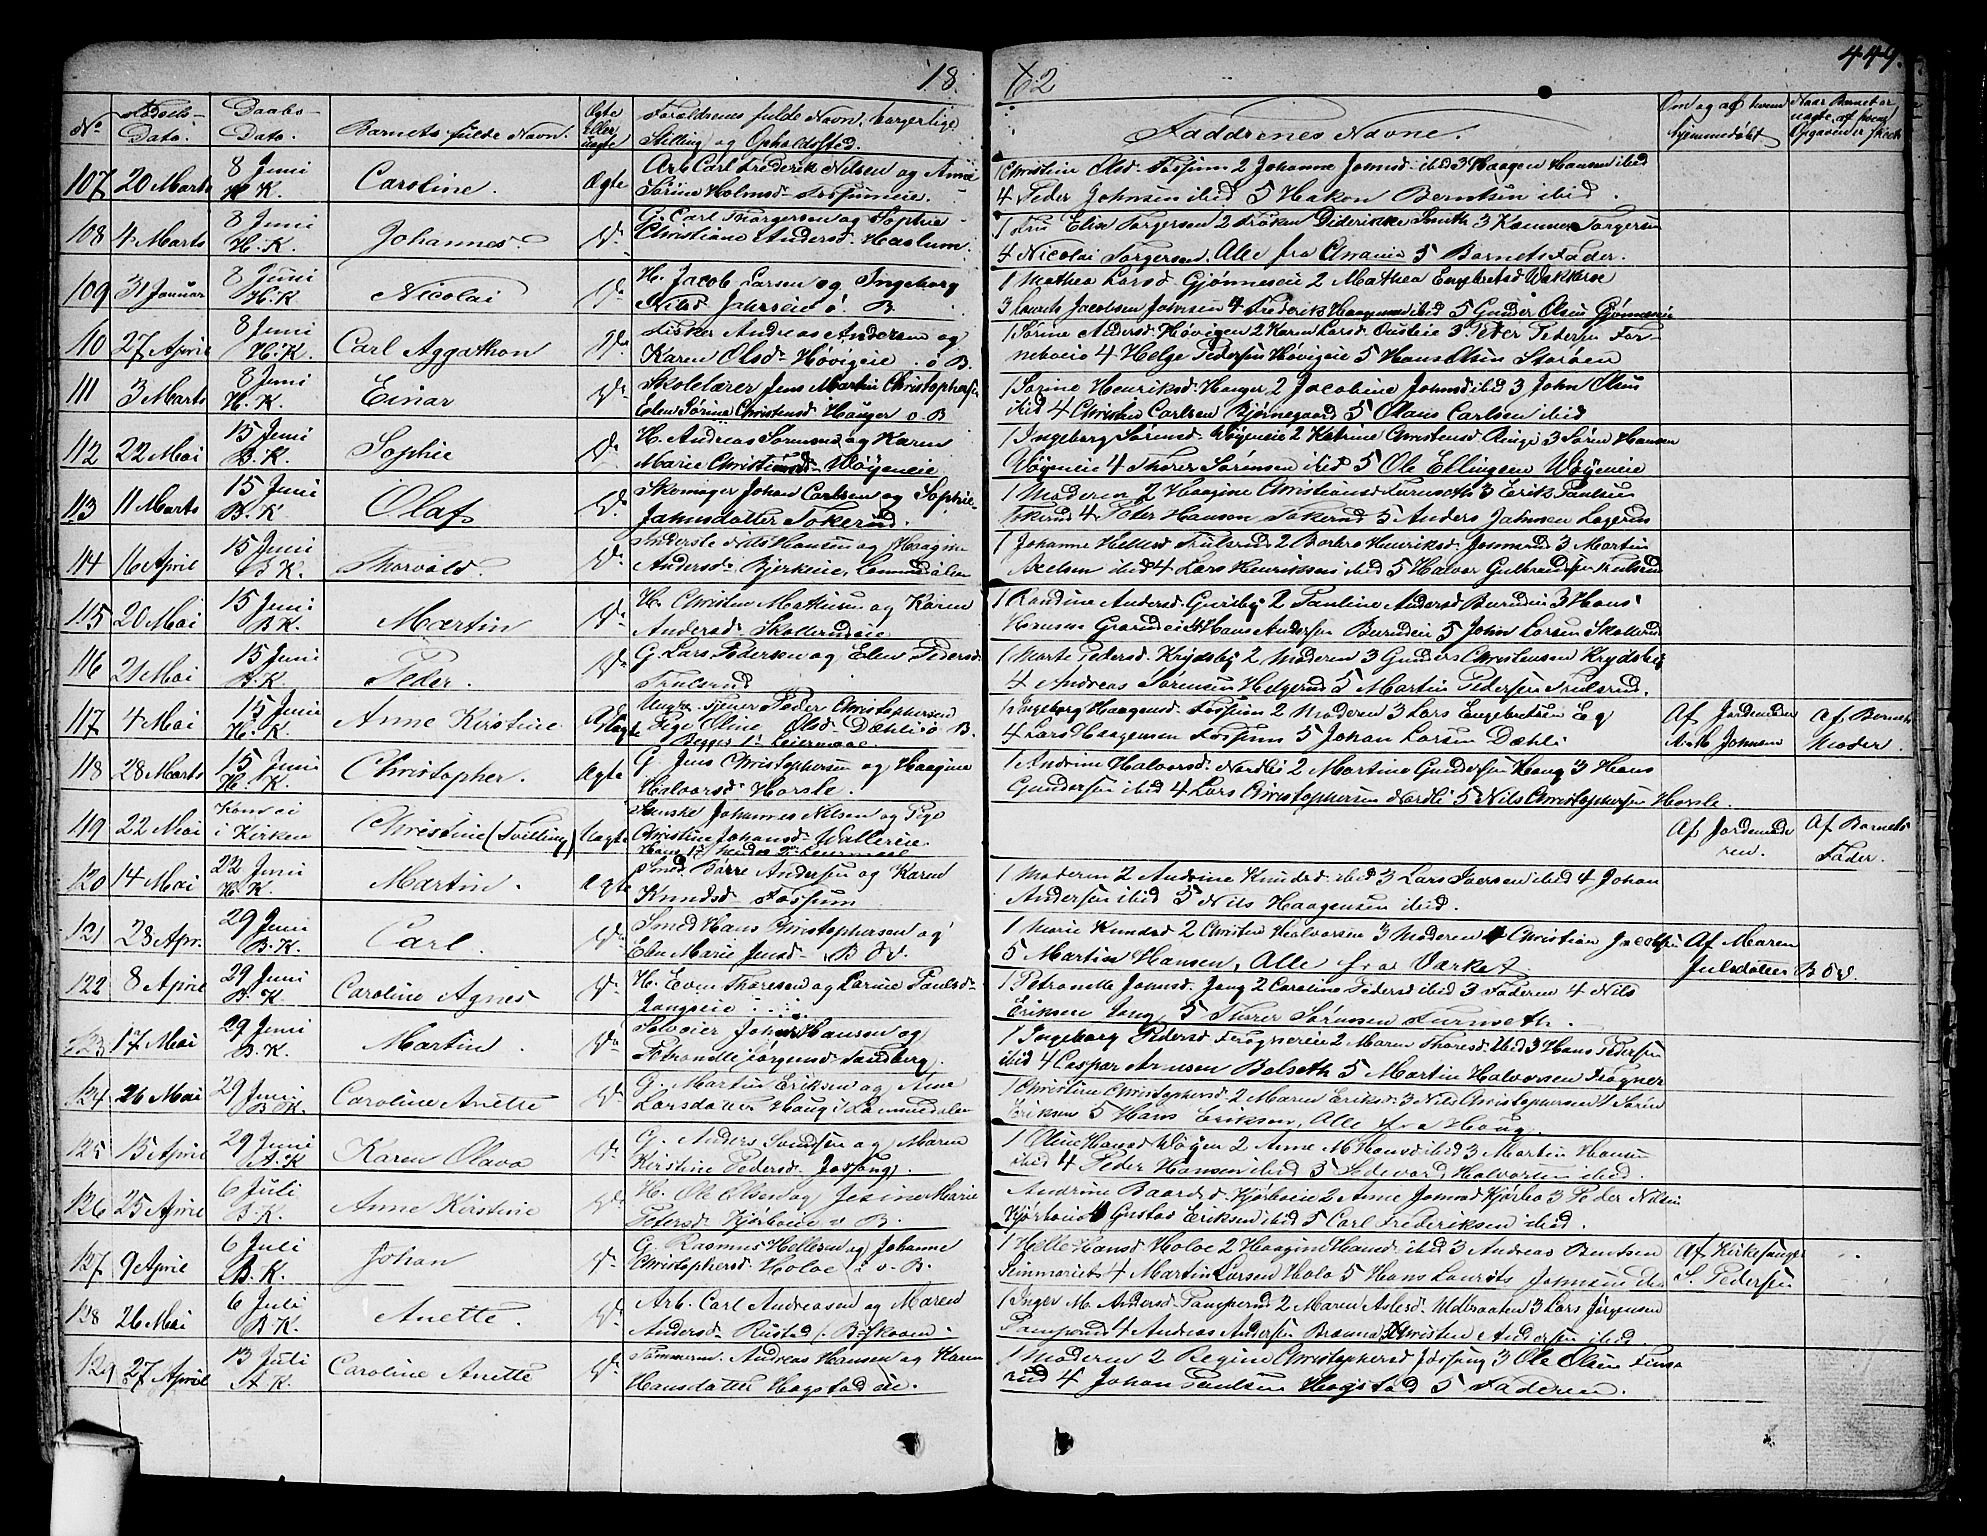 18 62
449.
No
Fødsels-Dato.
Daabs-Dato.
Barnets fulde Navn.
Ægte eller uægte
Forældrenes fulde Navn, borgerlige Stilling og Opholdssted.
Faddrenes Navne.
Om og af hvem hjemmedøbt
Naar Barnet er uægte, af hvem Opgaven er skeet
107 20 Marts 8 Juni H. K. Caroline. Ægte
Arb. Carl Frederik Nilsen og Anne
Sørine Holmsd. Fossumeie.
1 Christine Olsd. Fossum 2 Johanne Jonsd. ibid 3 Haagen Hansen ibid
4 Peder Johnsen ibid 5 Hakon Berntsen ibid.
108 4 Marts 8 Juni H. K. Johannes. Do
G. Carl Thorgersen og Sophie
Christiane Andersd. Haslum.
1 Fru Elise Torgersen 2 Frøken Diderikke Smith 3 Torgersen
4 Nicolai Torgersen. Alle fra 5 Barnets Fader.
109 31 Januar 8 Juni H. K. Nicolai Do
H. Jacob Larsen og Ingeborg
Nilsd. B.
1 Mathea Larsd. Gjønneseie 2 Mathea Engebretsd Vækkerøe
3 Laurits Jacobsen 4 Frederik Haagensen ibid 5 Gunder Olsen Gjønneseie
110 27 April 8 Juni H. K. Carl Aggathon Do
Fisker Andreas Andersen og
Karen Olsd. Høvigeie B.
1 Sørine Andersd. Høvigen 2 Karen Larsd. 3 Peter Pedersen
4 Helge Pedersen Høvigeie 5 Hans Olsen Storøen
111 3 Marts 8 Juni H. K. Einar Do
Skolelærer Jens Martin Christophersen
Elen Sørine Christensd. Hauger B
1 Sørine Henriksd. Hauger 2 Jacobine Johnsd ibid 3 John Olsen
ibid 4 Christen Carlsen Bjørnegaard 5 Olaus Carlsen ibid
112 22 Mai 15 Juni B. K. Sophie Do
H. Andreas Sørensen og Karen
Marie Christiansd. Wøyeneie
1 Ingeborg Sørensd. Wøyeneie 2 Katrine Christensd Ringi 3 Søren Hansen
Wøyeneie 4 Thorer Sørensen ibid 5 Ole Ellingsen Wøyeneie
113 11 Marts 15 Juni B. K. Olaf Do
Skomager Johan Carlsen og Sophie
Johnsdatter Tokerud.
1 Moderen 2 Haagine Christiansd 3 Erik Paulsen
Tokerud 4 Peter Hansen Tokerud 5 Anders Johnsen
114 16 April 15 Juni B. K. Thorvald. Do
Inderste Nils Hansen og Haagine
Andersd. Bjerkeie, Lommedalen
1 Johanne Trulsrud 2 Barbro Henriksd. 3 Martin
Axelsen ibid 4 Lars Henriksen ibid 5 Halvor Gulbrandsen
115 20 Mai 15 Juni B. K. Martin Do
H. Christen Mathisen og Karen
Andersd. Skollerudeie
1 Randine Andersd. 2 Pauline Andersd 3 Hans
4 Hans Andersen 5 John Larsen Skollerud
116 21 Mai 15 Juni B. K. Peder. Do
G. Lars Pedersen og Elen Pedersd.
Trulsrud
1 Marte Pedersd. Krydsby 2 Moderen 3 Gunders Christensen Krydsby
4 Andreas Sørensen Helgerud 5 Martin Pedersen Trulsrud.
117 4 Mai 15 Juni H. K. Anne Kirstine Uægte
Ungk. Tjener Peder Christophersen
Pige Oline Olsd. Dæhli B.
Begges 1ste Leiermaal.
1 Ingeborg Haagensd. Fossum 2 Moderen 3 Lars Engebretsen Eg
4 Lars Haagensen Fossum 5 Johan Larsen Dæhli
Af Jordemoder Johnsen
Af Barnets Moder.
118 28 Marts 15 Juni H. K. Christopher. Ægte
G. Jens Christophersen og Haagine
Halvorsd. Horsle.
1 Andrine Halvorsd. Nordli 2 Martine Gundersen Haug 3 Hans
Gundersen ibid 4 Lars Christophersen Nordli 5 Nils Christophersen Horsle.
119 22 Mai Kom ei i Kirken Christine (Tvilling) Uægte
Svenske Johannes Nilsen og Pige
Christine Johansd. Walleneie
Af Jordemoderen.
Af Barnets Fader.
120 14 Mai 22 Juni H. K. Martin. Ægte
Smed Børre Andersen og Karen
Knudsd. Fossum
1 Moderen 2 Andrine Knudsd. ibid 3 Lars Iversen ibid 4 Johan
Andersen ibid 5 Nils Haagensen ibid.
121 28 Apr. 29 Juni B. K. Carl. Do
Smed Hans Christophersen og
Elen Marie Jensd. B. V.
1 Marie Knudsd 2 Christen Halvorsen 3 Moderen 4 Christian Jacobsen
5 Martin Hansen, Alle fra Værket
Af Maren Julsdatter B. V.
122 8 April 29 Juni B. K. Caroline Agnes Do
H. Even Thoresen og Larine Paulsd.
Jongseie
1 Petronelle Johnsd. Jong 2 Caroline Pedersd ibid 3 Faderen 4 Nils
Eriksen Jong 5 Thorer Sørensen
123 17 Mai 29 Juni B. K. Martin. Do
Johan Hansen og
Petronelle Jørgensd. Sandberg.
1 Ingeborg Pedersd Frognereie 2 Maren Thoresd. ibid 3 Hans Pedersen
ibid 4 Caspar Arnesen Bolseth 5 Martin Halvorsen Frogner
124 26 Mai 29 Juni B. K. Caroline Anette Do
G. Martin Eriksen og Ane
Larsdatter Haug i Lommedalen
1 Christine Christophersd 2 Maren Eriksd. 3 Nils Christophersen 4 Søren
Eriksen 5 Hans Eriksen, Alle fra Haug.
125 15 April 29 Juni A. K. Karen Olava Do
G. Anders Svendsen og Maren
Kirstine Pedersd. Jossong.
1 Oline Hansd Wøyen 2 Anne M Hansd ibid 3 Martin Hansen
ibid 4 Peder Hansen ibid 5 Halvorsen ibid.
126 25 April 6 Juli B. K. Anne Kirstine Do
H. Ole Olsen og Jesine Marie
Petersd. Kjørboeie B.
Andrine Baardsd. Kjørboeie 2 Anne Johnsd Kjørbo 3 Peder Nilsen
Kjørboeie 4 Gustav Eriksen ibid 5 Carl Frederiksen ibid.
127 9 April 6 Juli B. K. Johan Do
G. Rasmus Hellesen og Johanne
Christophersd. Holoe B.
1 Helle Hansd Holoe 2 Haagine Hansd. ibid 3 Andreas Berntsen
4 Martin Larsen Holo 5 Hans Laurits Johnsen
Af Kirkesanger S. Pedersen
128 26 Mai 6 Juli B. K. Anette. Do
Arb. Carl Andreasen og Maren
Andersd. Rustad
1 Inger M. Andersd. Tamperud 2 Maren Aslesd. Udbraaten 3 Lars Jørgensen
Tamperud 4 Andreas Andersen 5 Christen Andersen ibid.
129 27 April 13 Juli A. K. Caroline Anette Do
Tømmerm. Andreas Hansen og Karen
Hansdatter Hogstad eie.
1 Moderen 2 Regine Christophersd Jøssong 3 Ole Olsen
4 Johan Paulsen Hogstad 5 Faderen.